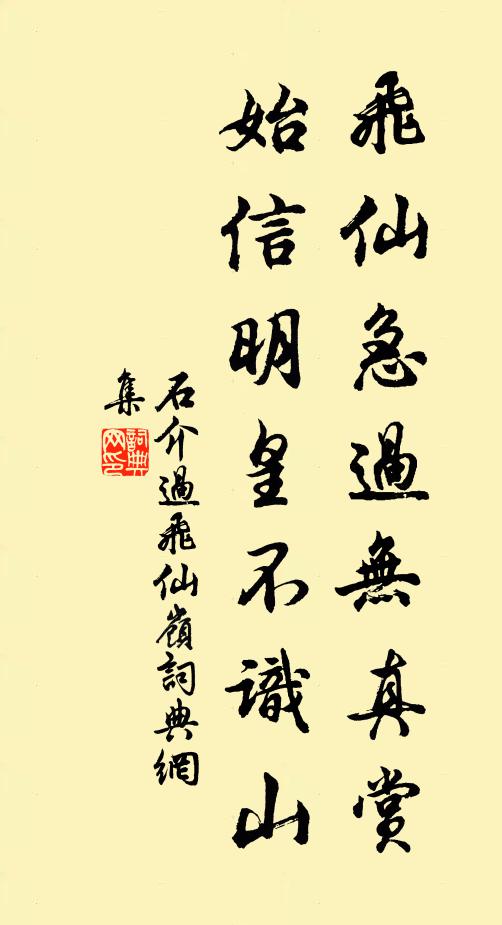 飛仙急過無真賞
始信明皇不識山
石介過飛仙嶺詞典網
集
詞典
网印